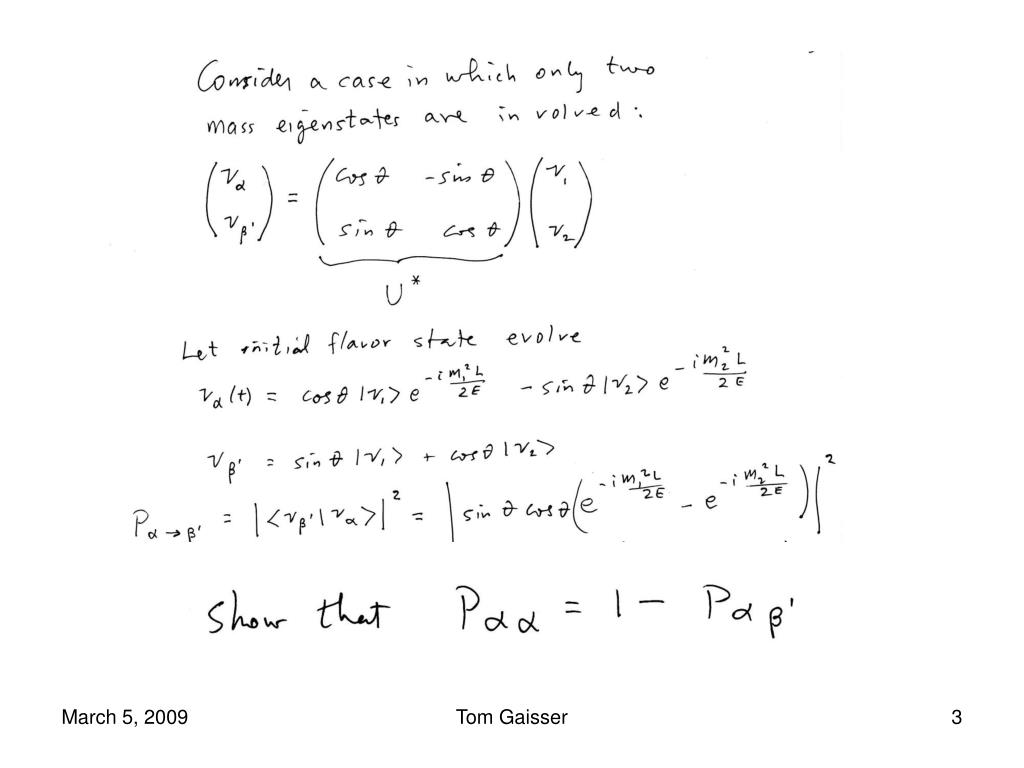 Consider a case in which only two
mass eigenstates are involved:
(να νβ') = (cos θ -sin θ sin θ cos θ) (ν₁ ν₂)
U*
Let initial flavor state evolve
να(t) = cosθ |ν₁> e^{-i m₁² L / 2E} - sin θ |ν₂> e^{-i m₂² L / 2E}
νβ' = sin θ |ν₁> + cosθ |ν₂>
Pα→β' = |<νβ'|να>|² = |sin θ cosθ (e^{-i m₁² L / 2E} - e^{-i m₂² L / 2E})|²
Show that Pαα = 1 - Pαβ'
March 5, 2009 Tom Gaisser 3